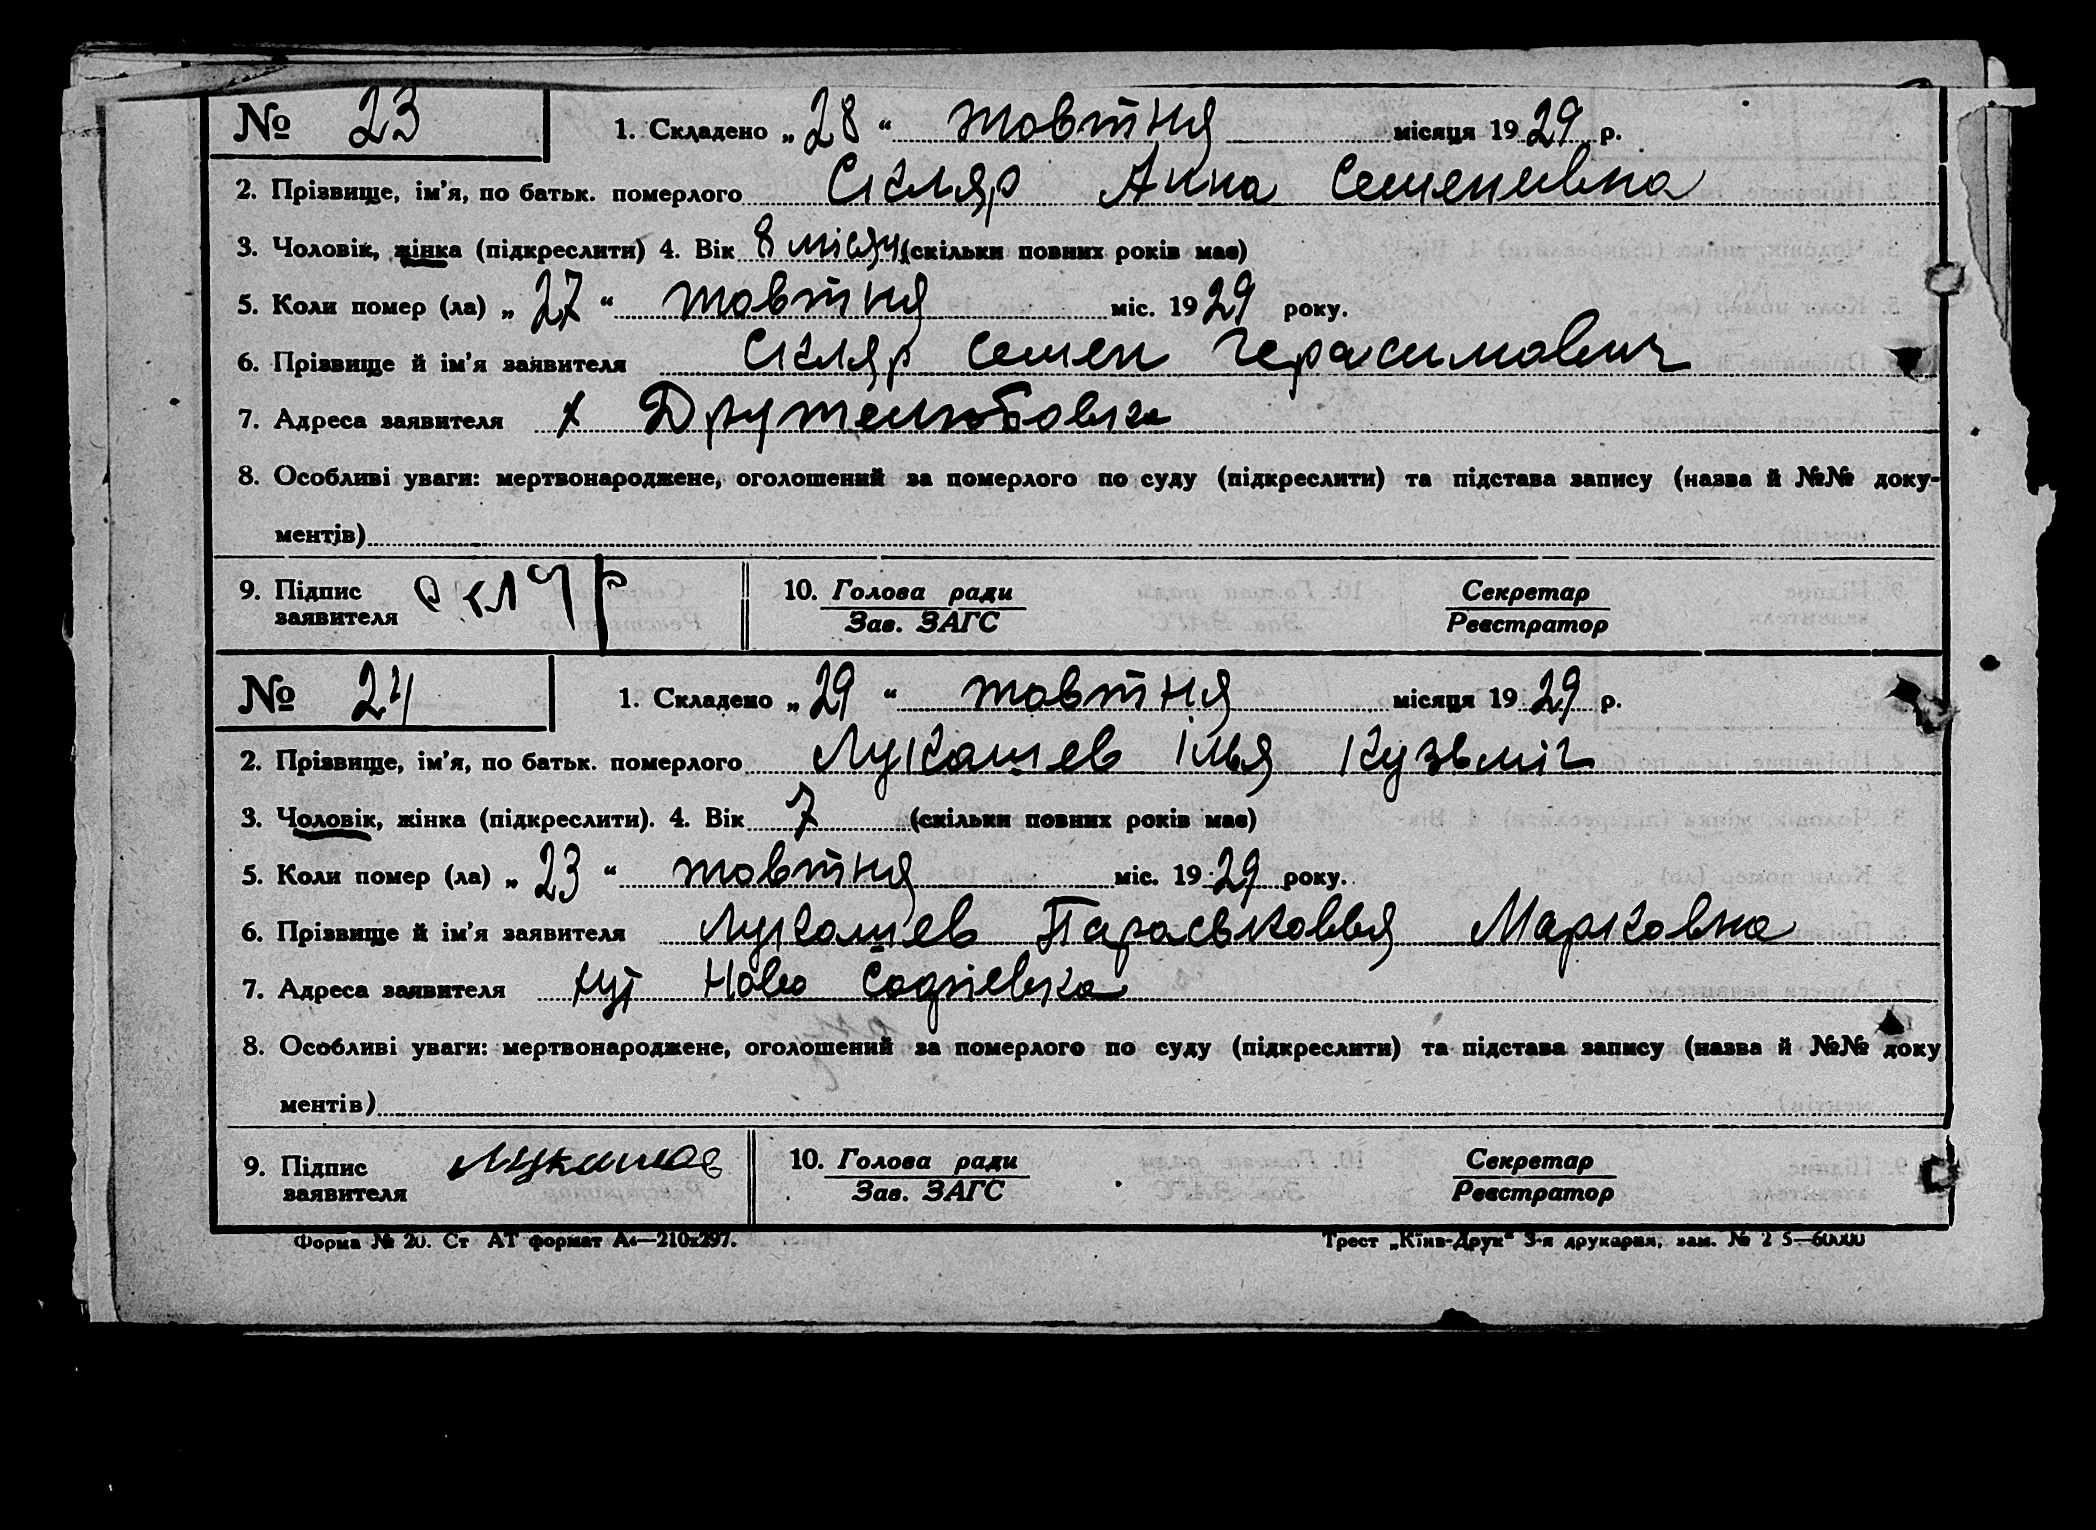 № 23 1. Складено „28“ жовтня місяця 1929 р.
2. Прізвище, ім'я, по батьк. померлого Скляр Анна Семеновна
3. Чоловік, жінка (підкреслити) 4. Вік 8 місяц (скільки повних років має)
5. Коли помер (ла) „27“ жовтня міс. 1929 року.
6. Прізвище й ім'я заявителя Скляр Семен Герасимович
7. Адреса заявителя х Дружелюбовка
8. Особливі уваги: мертвонароджене, оголошений за померлого по суду (підкреслити) та підстава запису (назва й №№ доку-
ментів)
9. Підпис заявителя скляр 10. Голова ради Секретар
Зав. ЗАГС Реєстратор
№ 24 1. Складено „29“ жовтня місяця 1929 р.
2. Прізвище, ім'я, по батьк. померлого Лукашев Ілья Кузьміч
3. Чоловік, жінка (підкреслити). 4. Вік 7 (скільки повних років має)
5. Коли помер (ла) „23“ жовтня міс. 1929 року.
6. Прізвище й ім'я заявителя Лукашев Параськовья Марковна
7. Адреса заявителя хут Ново
8. Особливі уваги: мертвонароджене, оголошений за померлого по суду (підкреслити) та підстава запису (назва й №№ доку
ментів)
9. Підпис заявителя Лукашов 10. Голова ради Секретар
Зав. ЗАГС Реєстратор
Форма № 20. Ст АТ формат А4—210х297. Трест „Київ-Друк“ 3-я друкарня, зам. №